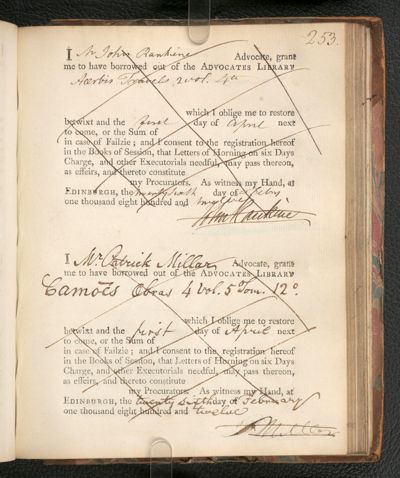 253.
I Mr John Rankine Advocate, grant
me to have borrowed out of the ADVOCATES LIBRARY
Acerbis Travels 2 vol. 4to
which I oblige me to restore
betwixt and the first day of April next
to come, or the Sum of
in case of Failzie; and I consent to the registration hereof
in the Books of Session, that Letters of Horning on six Days
Charge, and other Executorials needful, may pass thereon,
as effeirs, and thereto constitute
my Procurators. As witness my Hand, at
EDINBURGH, the day of Feby
one thousand eight hundred and twelve
John Rankine
I Mr Patrick Millar, Advocate, grant
me to have borrowed out of the ADVOCATES LIBRARY
Camoēs Obras 4 vol. 5 Tom. 12o.
which I oblige me to restore
betwixt and the first day of April next
to come, or the Sum of
in case of Failzie; and I consent to the registration hereof
in the Books of Session, that Letters of Horning on six Days
Charge, and other Executorials needful, may pass thereon,
as effeirs, and thereto constitute
my Procurators. As witness my Hand, at
EDINBURGH, the twenty sixth day of February
one thousand eight hundred and twelve
Millar